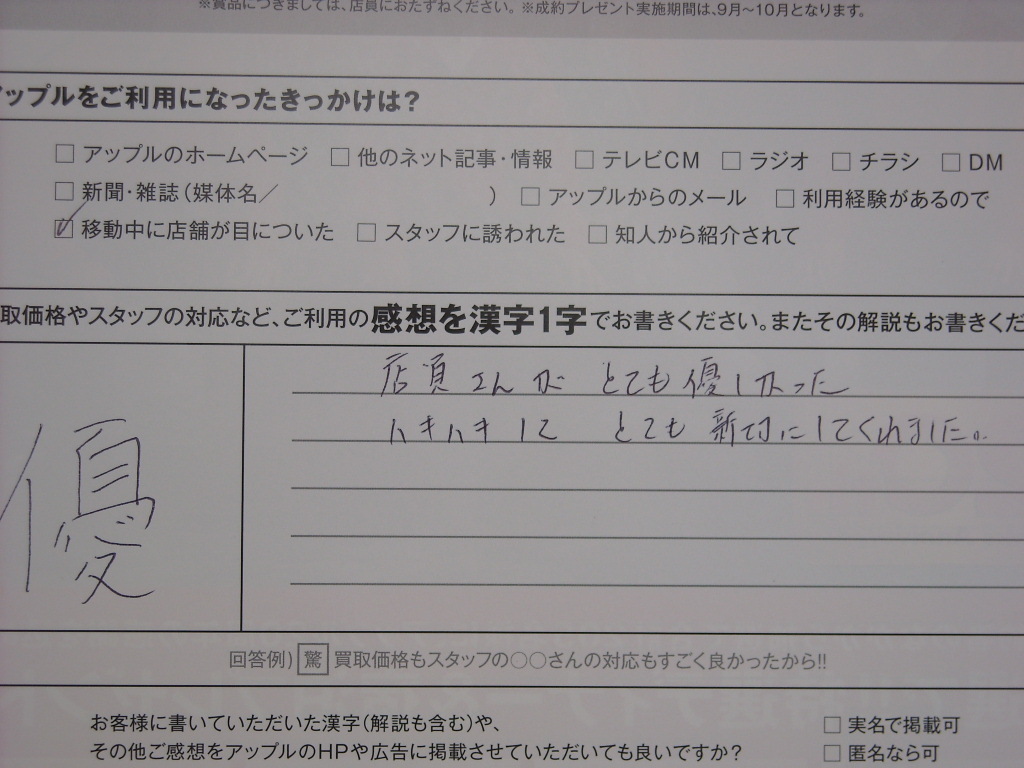 ※賞品につきましては、店員におたずねください。※成約プレゼント実施期間は、9月〜10月となります。
アップルをご利用になったきっかけは？
□ アップルのホームページ □ 他のネット記事・情報 □ テレビCM □ ラジオ □ チラシ □ DM
□ 新聞・雑誌（媒体名／ ） □ アップルからのメール □ 利用経験があるので
☑ 移動中に店舗が目についた □ スタッフに誘われた □ 知人から紹介されて
取価格やスタッフの対応など、ご利用の感想を漢字1字でお書きください。またその解説もお書きくだ
優
店員さんが とても優しかった
ハキハキして とても新切にしてくれました。
回答例） 驚 買取価格もスタッフの○○さんの対応もすごく良かったから!!
お客様に書いていただいた漢字（解説も含む）や、 □ 実名で掲載可
その他ご感想をアップルのHPや広告に掲載させていただいても良いですか？ □ 匿名なら可